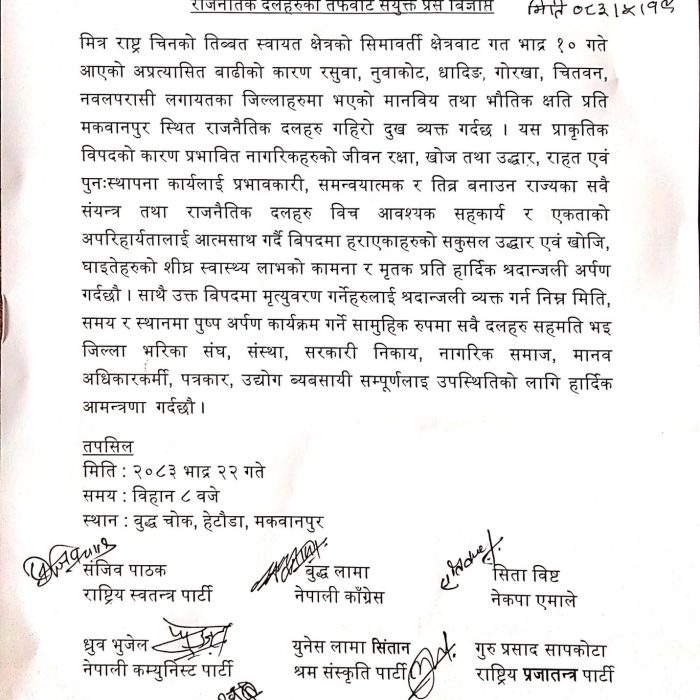 राजनैतिक दलहरुको तर्फबाट संयुक्त प्रेस विज्ञप्ति
मित्र राष्ट्र चिनको तिब्बत स्वायत क्षेत्रको सिमावर्ती क्षेत्रवाट गत भाद्र १० गते
आएको अप्रत्यासित बाढीको कारण रसुवा, नुवाकोट, धादिङ, गोरखा, चितवन,
नवलपरासी लगायतका जिल्लाहरुमा भएको मानविय तथा भौतिक क्षति प्रति
मकवानपुर स्थित राजनैतिक दलहरु गहिरो दुख व्यक्त गर्दछ । यस प्राकृतिक
विपदको कारण प्रभावित नागरिकहरुको जीवन रक्षा, खोज तथा उद्धार, राहत एवं
पुनःस्थापना कार्यलाई प्रभावकारी, समन्वयात्मक र तिव्र बनाउन राज्यका सवै
संयन्त्र तथा राजनैतिक दलहरु विच आवश्यक सहकार्य र एकताको
अपरिहार्यतालाई आत्मसाथ गर्दै बिपदमा हराएकाहरुको सकुसल उद्धार एवं खोजि,
घाइतेहरुको शीघ्र स्वास्थ्य लाभको कामना र मृतक प्रति हार्दिक श्रदान्जली अर्पण
गर्दछौ । साथै उक्त बिपदमा मृत्युवरण गर्नेहरुलाई श्रदान्जली व्यक्त गर्न निम्न मिति,
समय र स्थानमा पुष्प अर्पण कार्यक्रम गर्ने सामुहिक रुपमा सवै दलहरु सहमति भइ
जिल्ला भरिका संघ, संस्था, सरकारी निकाय, नागरिक समाज, मानव
अधिकारकर्मी, पत्रकार, उद्योग ब्यबसायी सम्पूर्णलाइ उपस्थितिको लागि हार्दिक
आमन्त्रणा गर्दछौ ।
तपसिल
मिति : २०८३ भाद्र २२ गते
समय : विहान ८ वजे
स्थान : बुद्ध चोक, हेटौडा, मकवानपुर
संजिव पाठक बुद्ध लामा सिता विष्ट
राष्ट्रिय स्वतन्त्र पार्टी नेपाली काँग्रेस नेकपा एमाले
ध्रुव भुजेल युनेस लामा सिंतान गुरु प्रसाद सापकोटा
नेपाली कम्युनिस्ट पार्टी श्रम संस्कृति पार्टी राष्ट्रिय प्रजातन्त्र पार्टी